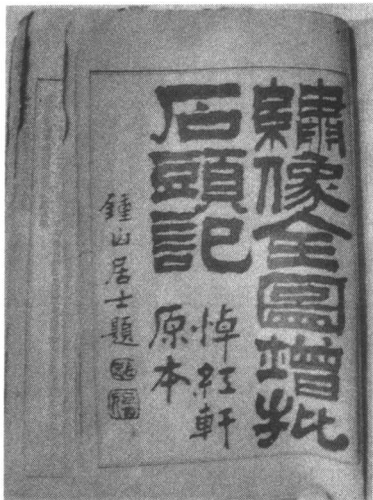 繡像全圖增批
石頭記
悼紅軒
原本
鍾山居士題